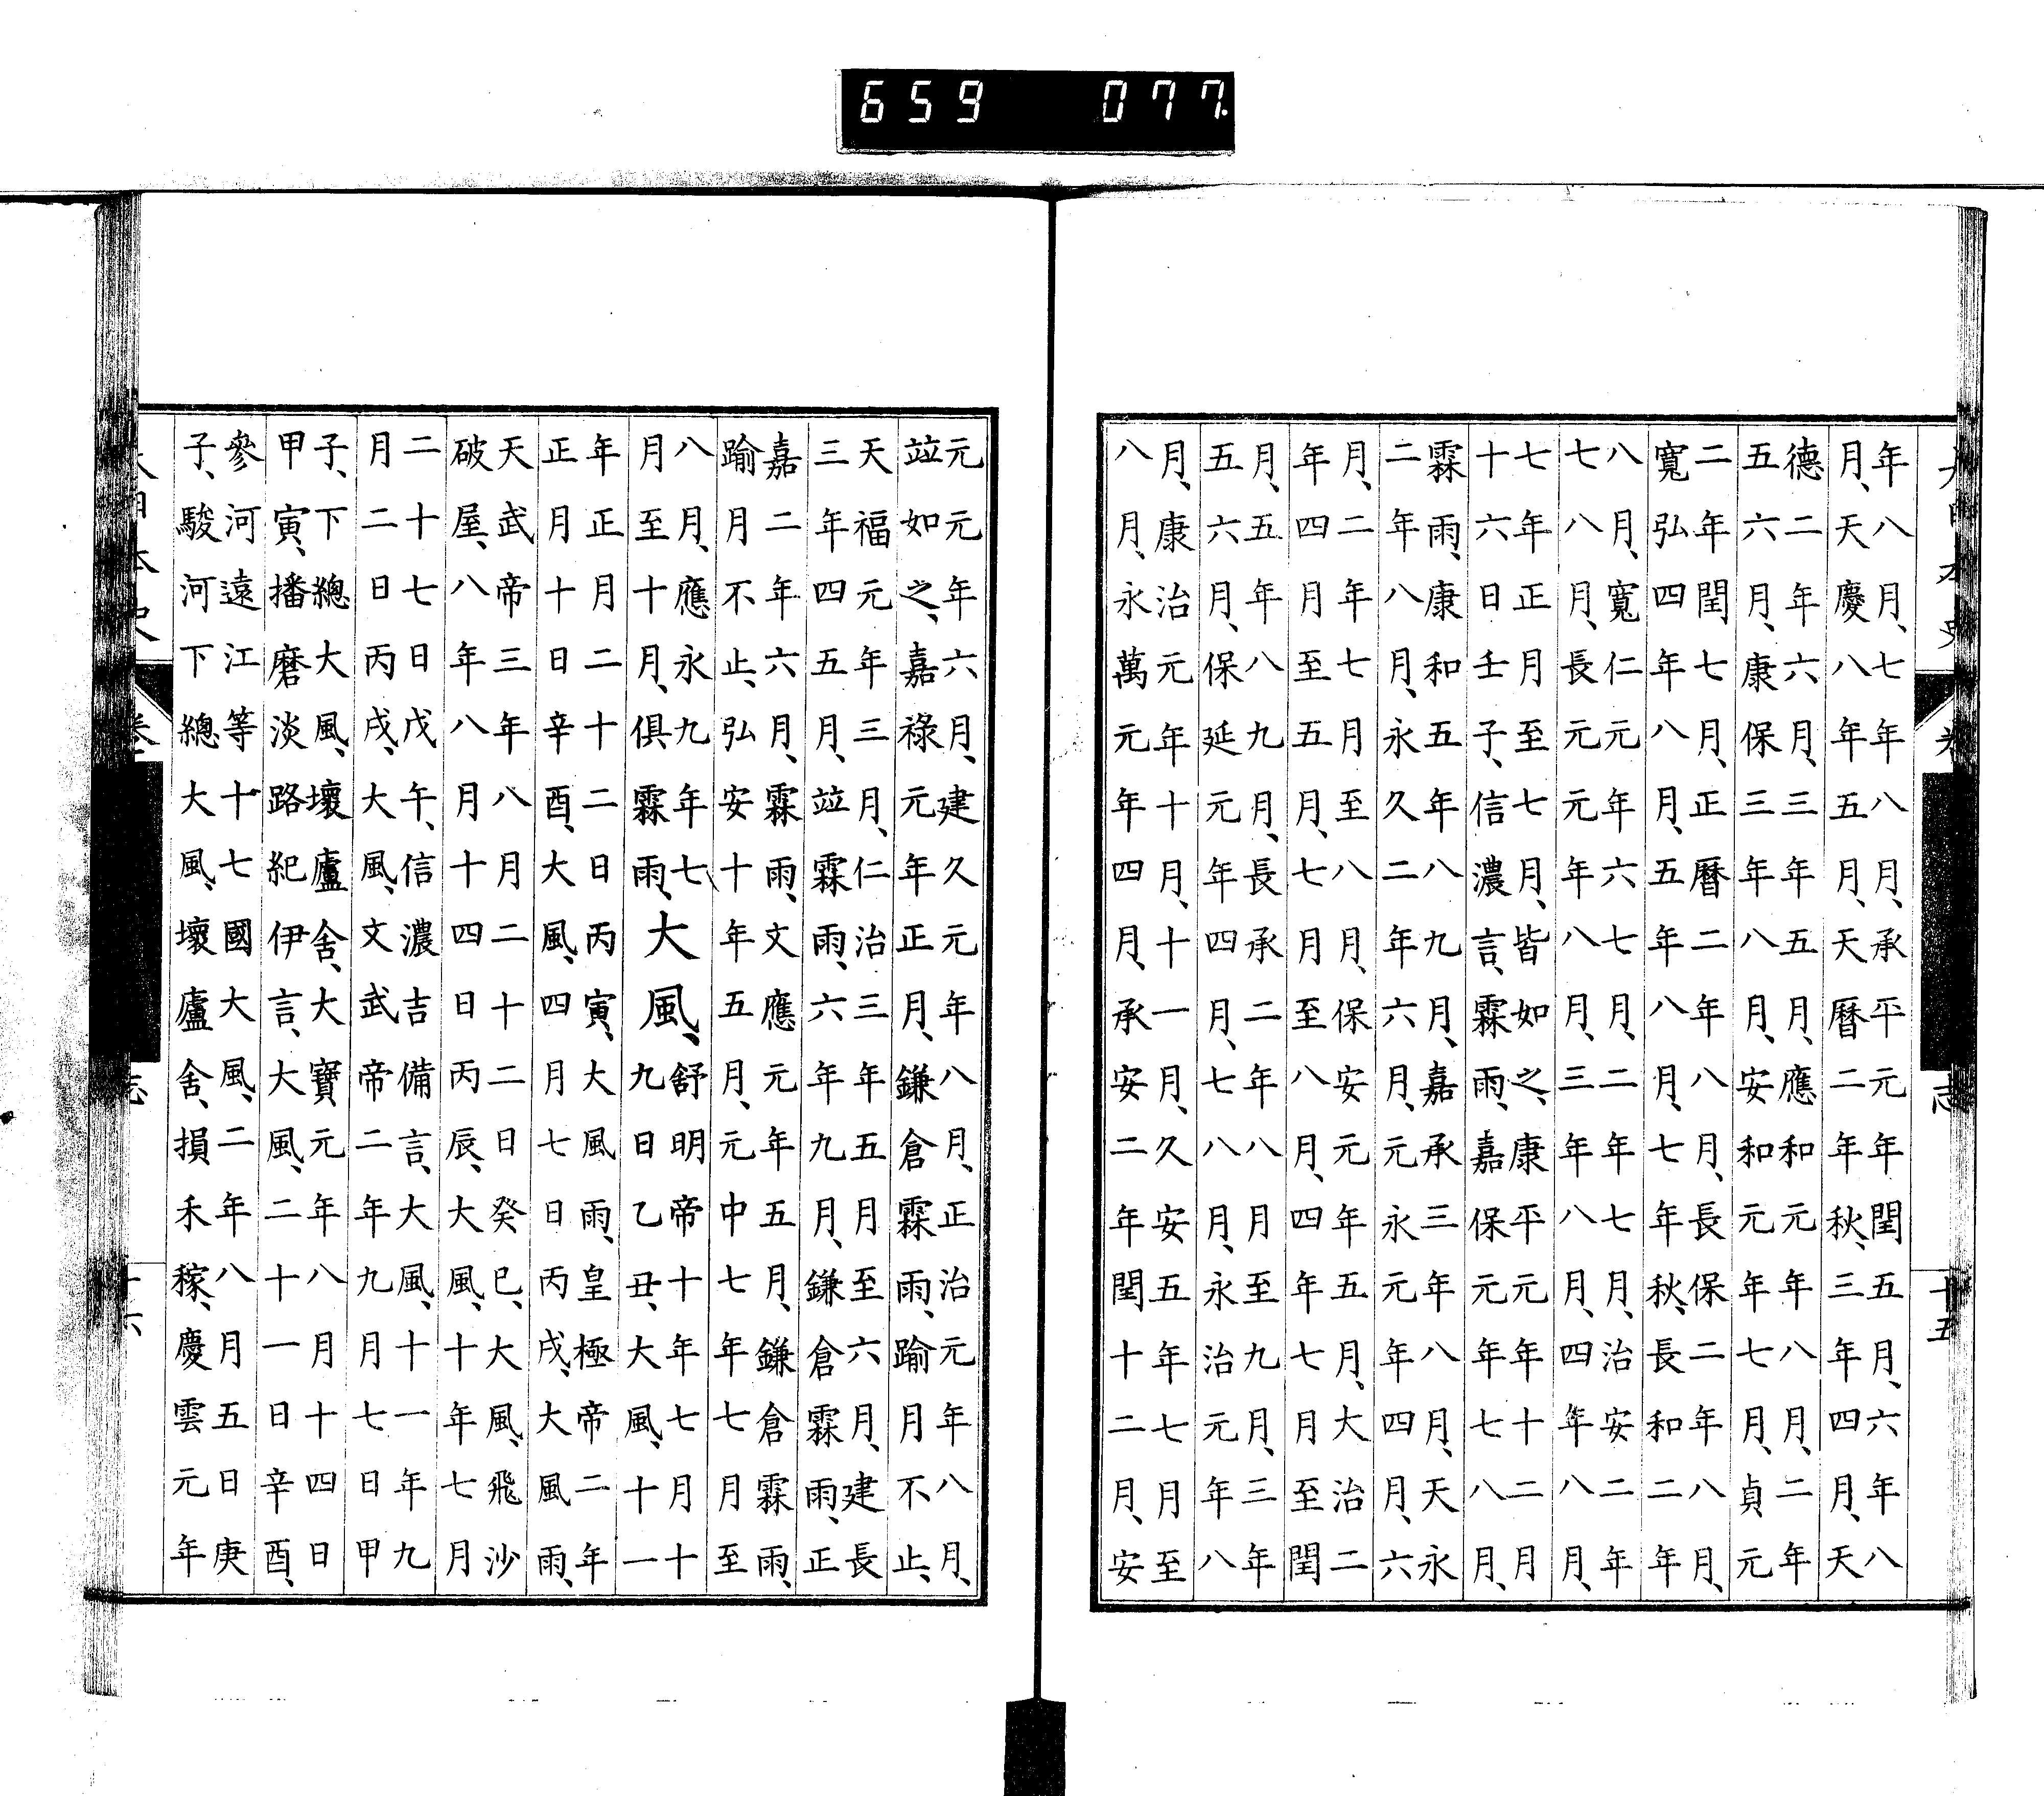 659 077
志 十五
年八月、七年八月、承平元年閏五月、六年八
月、天慶八年五月、天曆二年秋、三年四月、天
德二年六月、三年五月、應和元年八月、二年
五六月、康保三年八月、安和元年七月、貞元
二年閏七月、正曆二年八月、長保二年八月、
寬弘四年八月、五年八月、七年秋、長和二年
八月、寬仁元年六七月、二年七月、治安二年
七八月、長元元年八月、三年八月、四年八月、
七年正月至七月、皆如之、康平元年十二月
十六日壬子、信濃言、霖雨、嘉保元年七八月、
霖雨、康和五年八九月、嘉承三年八月、天永
二年八月、永久二年六月、元永元年四月、六
月、二年七月至八月、保安元年五月、大治二
年四月至五月、七月至八月、四年七月至閏
月、五年八九月、長承二年八月至九月、三年
五六月、保延元年四月、七八月、永治元年八
月、康治元年十月、十一月、久安五年七月至
八月、永萬元年四月、承安二年閏十二月、安
元元年六月、建久元年八月、正治元年八月、
竝如之、嘉祿元年正月、鎌倉霖雨、踰月不止、
天福元年三月、仁治三年五月至六月、建長
三年四五月、竝霖雨、六年九月、鎌倉霖雨、正
嘉二年六月、霖雨、文應元年五月、鎌倉霖雨、
踰月不止、弘安十年五月、元中七年七月至
八月、應永九年七
月至十月、俱霖雨、
大風、
舒明帝十年七月十
九日乙丑、大風、十一
年正月二十二日丙寅、大風雨、皇極帝二年
正月十日辛酉、大風、四月七日丙戌、大風雨、
天武帝三年八月二十二日癸巳、大風、飛沙
破屋、八年八月十四日丙辰、大風、十年七月
二十七日戊午、信濃吉備言、大風、十一年九
月二日丙戌、大風、文武帝二年九月七日甲
子、下總大風、壞廬舍、大寶元年八月十四日
甲寅、播磨淡路紀伊言、大風、二十一日辛酉、
參河遠江等十七國大風、二年八月五日庚
子、駿河下總大風、壞廬舍、損禾稼、慶雲元年